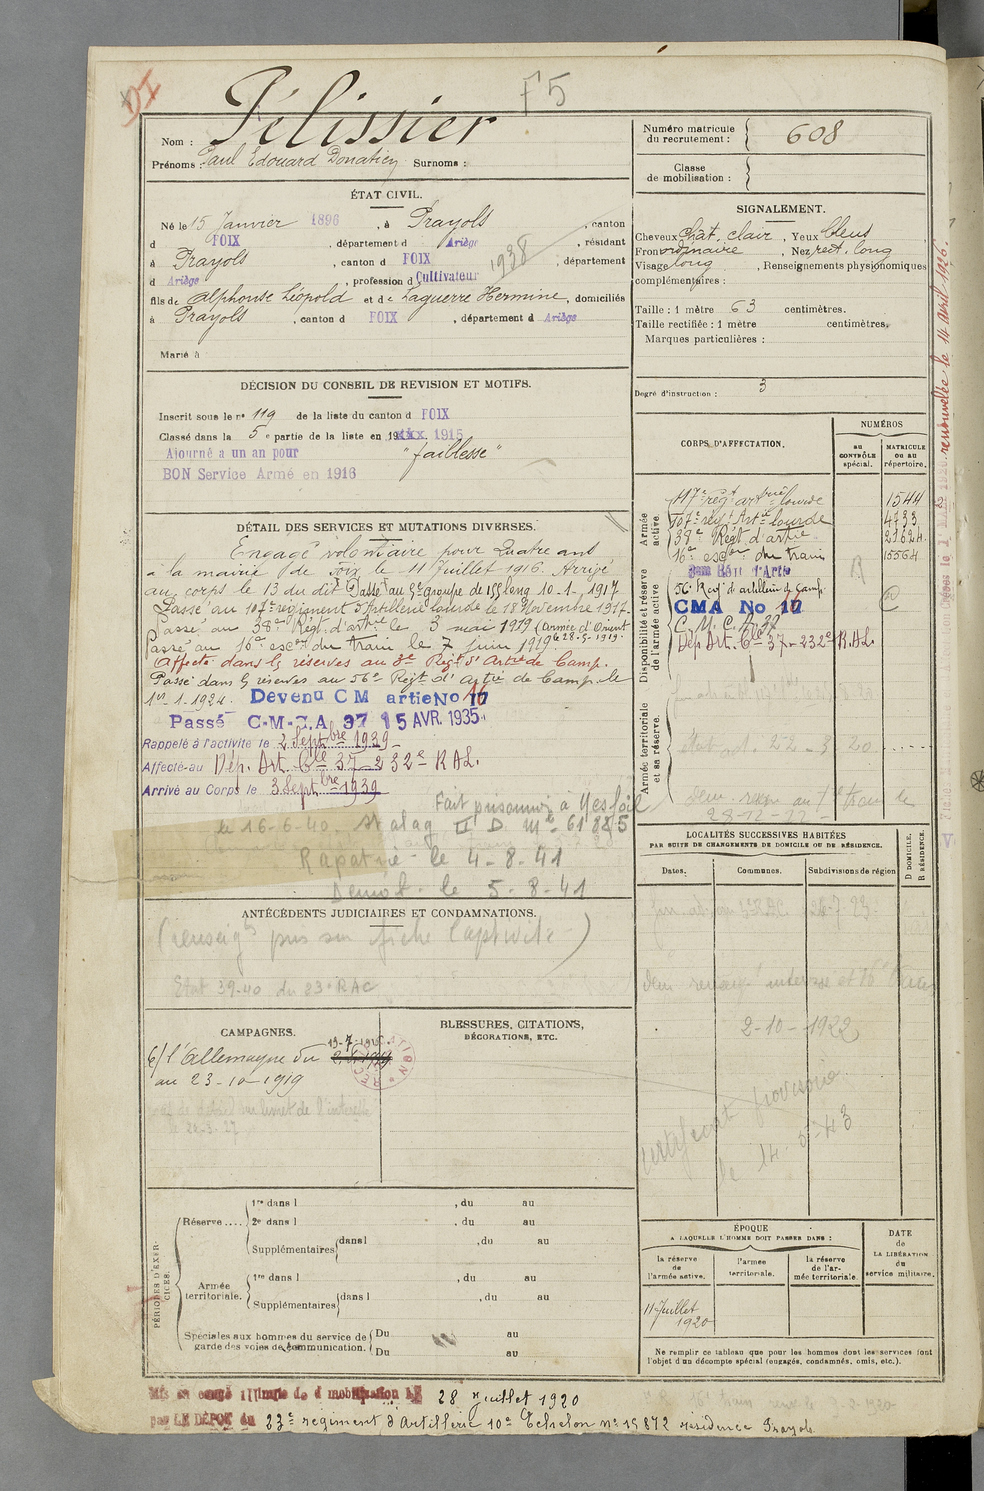 DI
F5
Nom : Pélissier
Prénoms : Paul Edouard Donatien Surnoms :
ÉTAT CIVIL.
Né le 15 Janvier 1896, à Prayols, canton
d FOIX, département d Ariège, résidant
à Prayols, canton d FOIX 1938, département
d Ariège, profession d Cultivateur
fils de Alphonse Léopold et de Laguerre Hermine, domiciliés
à Prayols, canton d FOIX, département d Ariège
Marié à
DÉCISION DU CONSEIL DE REVISION ET MOTIFS.
Inscrit sous le n° 119 de la liste du canton d FOIX
Classé dans la 5e partie de la liste en 1915
Ajourné a un an pour "faiblesse"
BON Service Armé en 1916
DÉTAIL DES SERVICES ET MUTATIONS DIVERSES.
Engagé volontaire pour Quatre ans
à la mairie de Foix le 11 Juillet 1916. Arrivé
au corps le 13 du dit Passé au 5e groupe de 155 long 10-1-1917
Passé au 107e régiment d'Artillerie Lourde le 18 Novembre 1917
Passé au 38e Régt. d'artie le 3 mai 1919 (Armée d'Orient
Passé au 16e escon du train le 7 juin 1919 le 28-5-1919.
Affecté dans les réserves au 3e Regt d'Artie de Camp.
Passé dans les réserves au 56e Regt d'Artie de Camp. le
1er-1-1924. Devenu CM artie No 17 16
Passé C-M-C.A 37 15 AVR. 1935
Rappelé à l'activité le 2 Septbre 1939
Affecté au Dép. Art. Cle 37-232e RAL.
Arrivé au Corps le 3 Septbre 1939
Fait prisonnier à
le 16-6-40. Stalag II D Mle 61885
Rapatrié le 4-8-41
Démob. le 5-8-41
ANTÉCÉDENTS JUDICIAIRES ET CONDAMNATIONS.
(renseigts pris sur fiche Captivité)
Etat 39-40 du 23e RAC
CAMPAGNES.
c/ l'Allemagne du 13-7-1916
au 23-10-1919
BLESSURES, CITATIONS,
DÉCORATIONS, ETC.
PÉRIODES D'EXERCICES.
Réserve.... 1re dans l , du au
2e dans l , du au
Supplémentaires dans l , du au
Armée territoriale. 1re dans l , du au
Supplémentaires dans l , du au
Spéciales aux hommes du service de garde des voies de communication. Du au
Du au
Mis en congé illimité de démobilisation LE 28 Juillet 1920
par LE DÉPOT du 23e regiment d'Artillerie 10e Echelon n° 15872 résidence Prayols
Numéro matricule du recrutement : 608
Classe de mobilisation :
SIGNALEMENT.
Cheveux chat. clair, Yeux bleus,
Front ordinaire, Nez rect. long
Visage long, Renseignements physionomiques
complémentaires :
Taille : 1 mètre 63 centimètres.
Taille rectifiée : 1 mètre centimètres.
Marques particulières :
Degré d'instruction : 3
CORPS D'AFFECTATION.
NUMÉROS
au CONTRÔLE spécial.
MATRICULE OU AU répertoire.
Armée active.
117e régt artrie lourde 1544
107e régt Artie lourde 4733
38e Régt d'artie
16e escon du train 15564
Disponibilité et réserve de l'armée active
56e Regt d'artillerie de Camp.
CMA No 16
Dép Art. Cle 37-232e R.AL.
Armée territoriale et sa réserve.
LOCALITÉS SUCCESSIVES HABITÉES
PAR SUITE DE CHANGEMENTS DE DOMICILE OU DE RÉSIDENCE.
Dates. Communes. Subdivisions de région
D DOMICILE. R RÉSIDENCE.
2-10-1922
certificat provisoire
le 14-5-43
ÉPOQUE
A LAQUELLE L'HOMME DOIT PASSER DANS :
la réserve de l'armée active.
l'armée territoriale.
la réserve de l'armée territoriale.
DATE de LA LIBÉRATION du service militaire.
11 Juillet 1920
Ne remplir ce tableau que pour les hommes dont les services font
l'objet d'un décompte spécial (engagés, condamnés, omis, etc.).
renouvelée le 14 avril 1926.